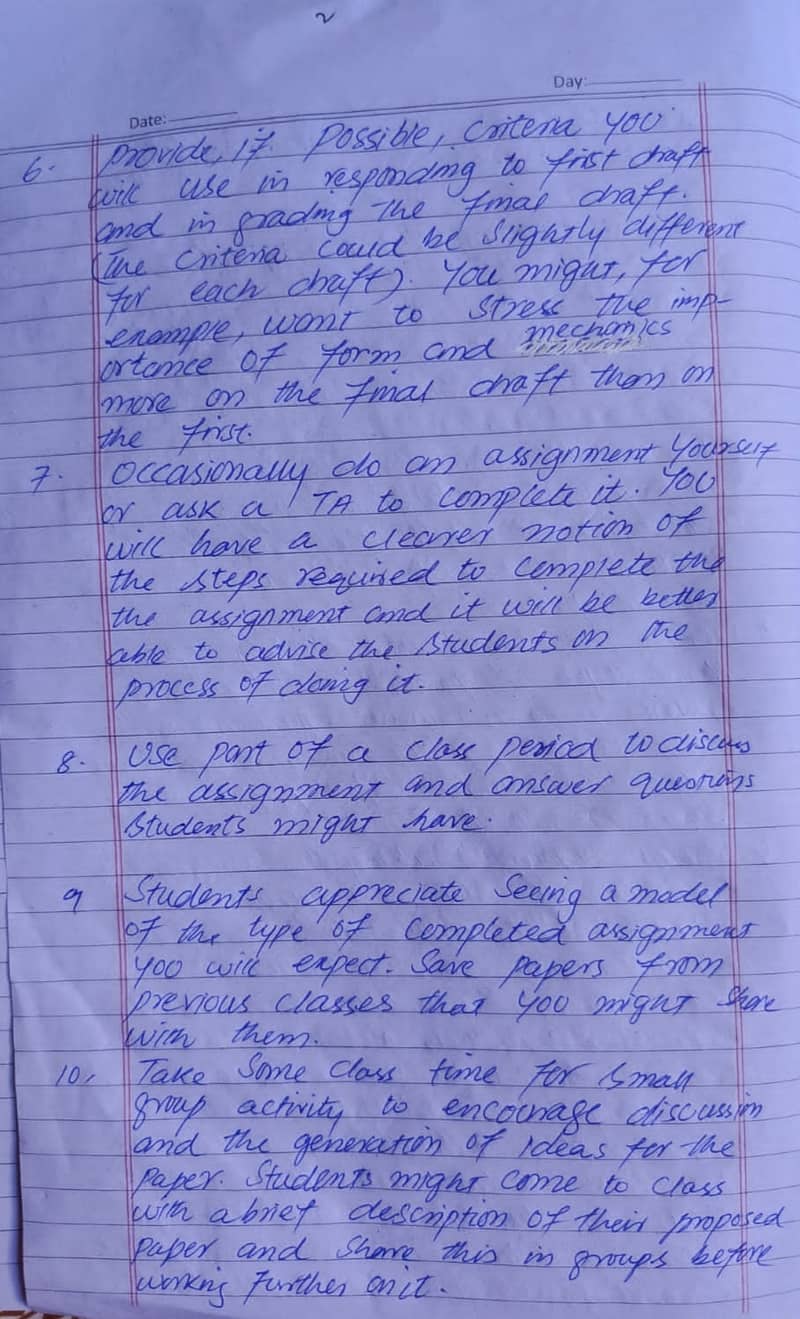 2
Day:
Date:
6. provide, if possible, criteria you
will use in responding to first draft
and in grading the final draft.
(The criteria could be slightly different
for each draft). You might, for
example, want to stress the imp-
ortance of form and mechanics
more on the final draft than on
the first.
7. Occasionally do an assignment yourself
or ask a TA to complete it. You
will have a clearer notion of
the steps required to complete the
the assignment and it will be better
able to advice the students on the
process of doing it.
8. Use part of a class period to discuss
the assignment and answer questions
students might have.
9 Students appreciate seeing a model
of the type of completed assignment
you will expect. Save papers from
previous classes that you might share
with them.
10, Take some class time for small
group activity to encourage discussion
and the generation of ideas for the
paper. Students might come to class
with a brief description of their proposed
paper and share this in groups before
working further on it.